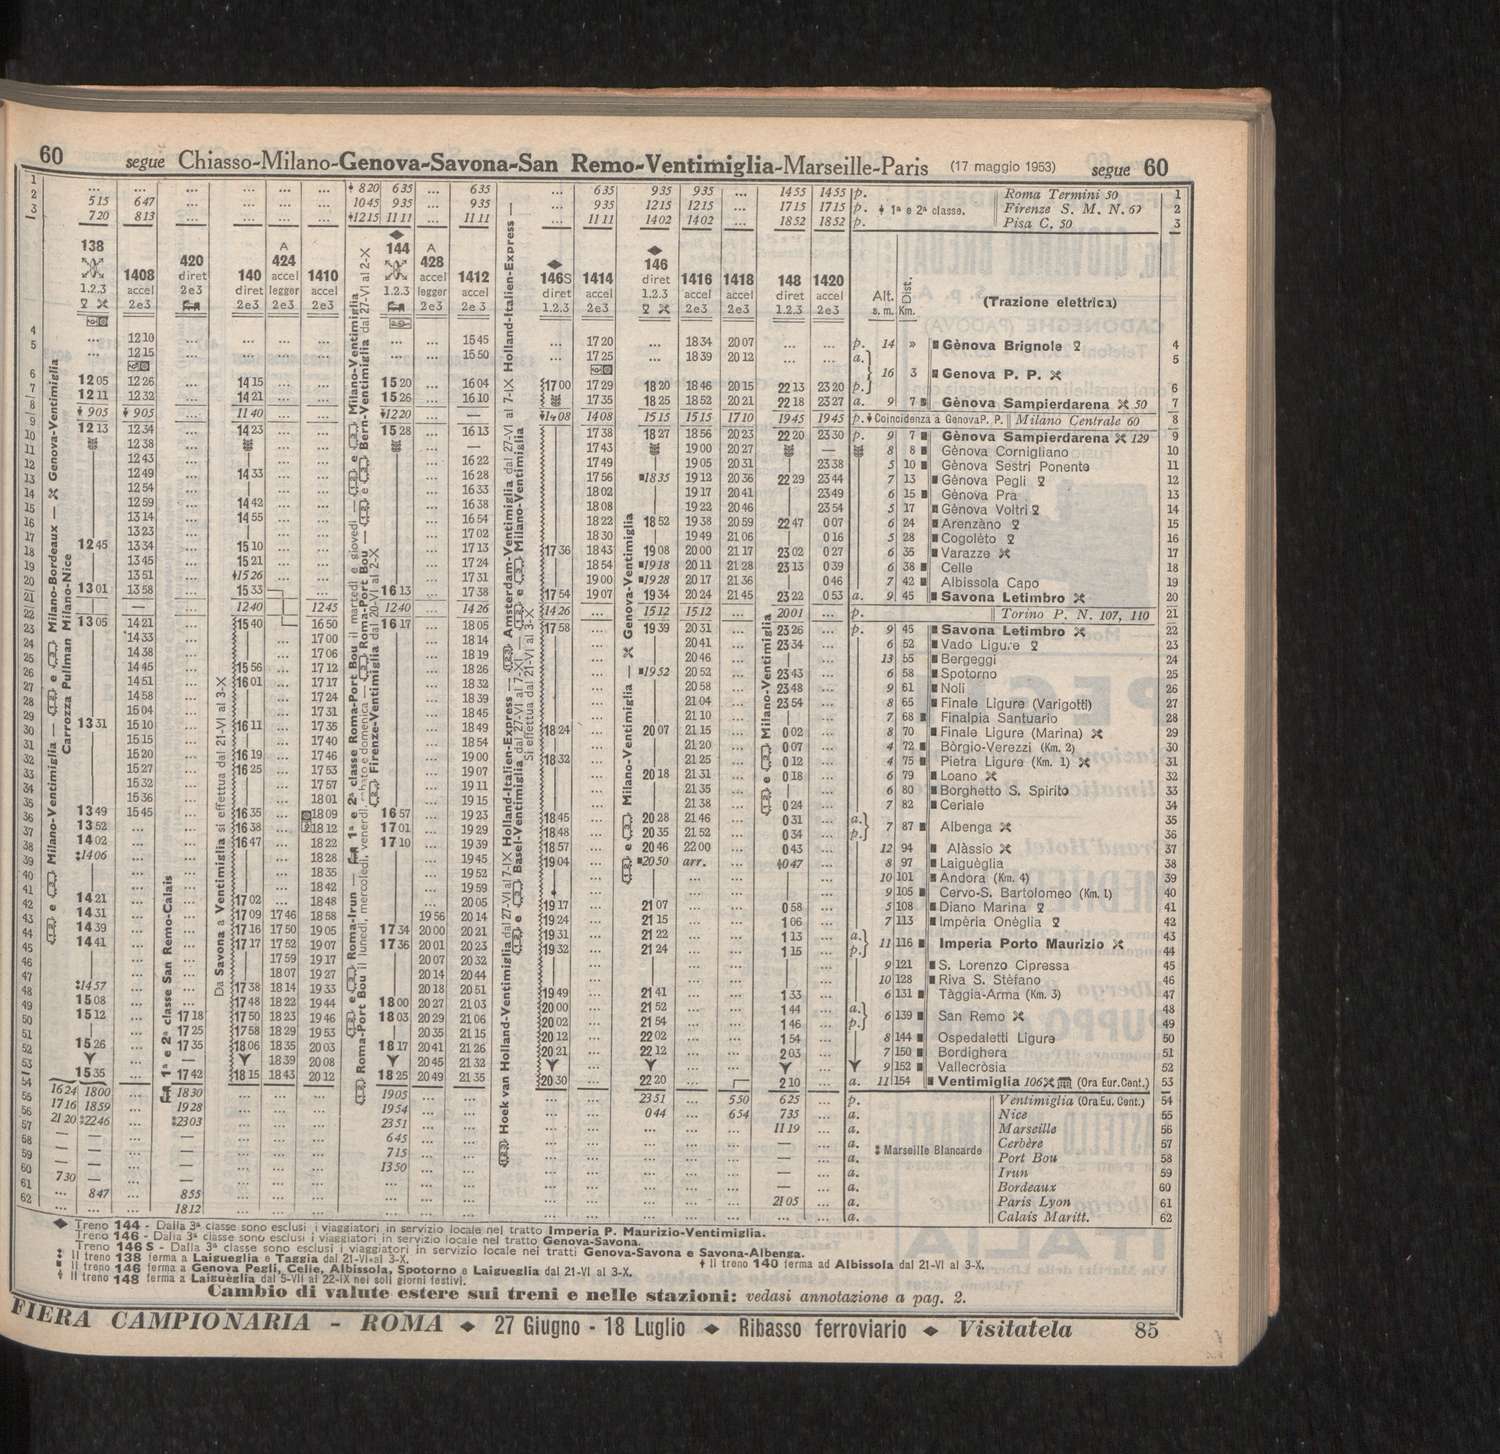 60 segue Chiasso-Milano-Genova-Savona-San Remo-Ventimiglia-Marseille-Paris (17 maggio 1953) segue 60
1 ... ... ... ... ... ... 8 20 6 35 ... 6 35 ... 6 35 9 35 9 35 ... 14 55 14 55 p. Roma Termini 50 1
2 5 15 6 47 ... ... ... ... 10 45 9 35 ... 9 35 ... 9 35 12 15 12 15 ... 17 15 17 15 p. 1ª e 2ª classe. Firenze S. M. N. 62 2
3 7 20 8 13 ... ... ... ... 12 15 11 11 ... 11 11 ... 11 11 14 02 14 02 ... 18 52 18 52 p. Pisa C. 50 3
138 1408 420 140 424 1410 144 428 1412 146S 1414 146 1416 1418 148 1420
1.2.3 accel diret diret A accel legger accel 1.2.3 A accel legger accel diret accel diret accel accel diret accel
2e3 2e3 2e3 2e3 2e3 2e3 2e 3 1.2.3 2e3 1.2.3 2e3 2e3 1.2.3 2e3
Alt. s. m. Dist. Km. (Trazione elettrica)
4 ... 12 10 ... ... ... ... ... ... 15 45 ... 17 20 ... 18 34 20 07 ... ... p. 14 » Gènova Brignole 4
5 ... 12 15 ... ... ... ... ... ... 15 50 ... 17 25 ... 18 39 20 12 ... ... a. 16 3 Genova P. P. 5
6 12 05 12 26 ... 14 15 ... ... 15 20 ... 16 04 17 00 17 29 18 20 18 46 20 15 22 13 23 20 p. 6
7 12 11 12 32 ... 14 21 ... ... 15 26 ... 16 10 17 35 18 25 18 52 20 21 22 18 23 27 a. 9 7 Gènova Sampierdarena 50 7
8 9 05 9 05 ... 11 40 ... ... 12 20 ... — 14 08 14 08 15 15 15 15 17 10 19 45 19 45 p. Coincidenza a Genova P. P. Milano Centrale 60 8
9 12 13 12 34 ... 14 23 ... ... 15 28 ... 16 13 17 38 18 27 18 56 20 23 22 20 23 30 p. 9 7 Gènova Sampierdarena 129 9
10 12 38 ... ... ... ... — 17 43 19 00 20 27 — 8 8 Gènova Cornigliano 10
11 12 43 ... ... ... ... 16 22 17 49 19 05 20 31 23 38 5 10 Gènova Sestri Ponente 11
12 12 49 ... 14 33 ... ... ... 16 28 17 56 18 35 19 12 20 36 22 29 23 44 7 13 Gènova Pegli 12
13 12 54 ... ... ... ... 16 33 18 02 19 17 20 41 23 49 6 15 Gènova Pra 13
14 12 59 ... 14 42 ... ... ... 16 38 18 08 19 22 20 46 23 54 5 17 Gènova Voltri 14
15 13 14 ... 14 55 ... ... ... 16 54 18 22 18 52 19 38 20 59 22 47 0 07 6 24 Arenzàno 15
16 13 23 ... ... ... ... 17 02 18 30 19 49 21 06 0 16 5 28 Cogolèto 16
17 12 45 13 34 ... 15 10 ... ... ... 17 13 17 36 18 43 19 08 20 00 21 17 23 02 0 27 6 35 Varazze 17
18 13 45 ... 15 21 ... ... ... 17 24 18 54 19 18 20 11 21 28 23 13 0 39 6 38 Celle 18
19 13 51 ... 15 26 ... ... ... 17 31 19 00 19 28 20 17 21 36 0 46 7 42 Albissola Capo 19
20 13 01 13 58 ... 15 33 ... 16 13 ... 17 38 17 54 19 07 19 34 20 24 21 45 23 22 0 53 a. 9 45 Savona Letimbro 20
21 — ... 12 40 12 45 12 40 ... 14 26 14 26 ... 15 12 15 12 ... 20 01 ... p. Torino P. N. 107, 110 21
22 13 05 14 21 ... 15 40 16 50 16 17 ... 18 05 17 58 ... 19 39 20 31 ... 23 26 ... p. 9 45 Savona Letimbro 22
23 14 33 ... ... 17 00 ... 18 14 ... 20 41 ... 23 34 ... 6 52 Vado Ligure 23
24 14 38 ... ... 17 06 ... 18 19 ... 20 46 ... ... 13 55 Bergeggi 24
25 14 45 ... 15 56 ... 17 12 ... 18 26 ... 19 52 20 52 ... 23 43 ... 6 58 Spotorno 25
26 14 51 ... 16 01 ... 17 17 ... 18 32 ... 20 58 ... 23 48 ... 9 61 Noli 26
27 14 58 ... ... 17 24 ... 18 39 ... 21 04 ... 23 54 ... 8 65 Finale Ligure (Varigotti) 27
28 15 04 ... ... 17 31 ... 18 45 ... 21 10 ... ... 7 68 Finalpia Santuario 28
29 13 31 15 10 ... 16 11 ... 17 35 ... 18 49 18 24 ... 20 07 21 15 ... 0 02 ... 8 70 Finale Ligure (Marina) 29
30 15 15 ... ... 17 40 ... 18 54 ... 21 20 ... 0 07 ... 4 72 Bòrgio-Verezzi (Km. 2) 30
31 15 20 ... 16 19 ... 17 46 ... 19 00 18 32 ... 21 25 ... 0 12 ... 4 75 Pietra Ligure (Km. 1) 31
32 15 27 ... 16 25 ... 17 53 ... 19 07 ... 20 18 21 31 ... 0 18 ... 6 79 Loano 32
33 15 32 ... ... 17 57 ... 19 11 ... 21 35 ... ... 6 80 Borghetto S. Spirito 33
34 15 36 ... ... 18 01 ... 19 15 ... 21 38 ... 0 24 ... 7 82 Ceriale 34
35 13 49 15 45 ... 16 35 ... 18 09 16 57 ... 19 23 18 45 ... 20 28 21 46 ... 0 31 ... a. 7 87 Albenga 35
36 13 52 ... ... 16 38 ... 18 12 17 01 ... 19 29 18 48 ... 20 35 21 52 ... 0 34 ... p. 36
37 14 02 ... ... 16 47 ... 18 22 17 10 ... 19 39 18 57 ... 20 46 22 00 ... 0 43 ... 12 94 Alàssio 37
38 14 06 ... ... ... 18 28 ... 19 45 19 04 ... 20 50 arr. ... 0 47 ... 8 97 Laiguèglia 38
39 ... ... ... 18 35 ... 19 52 ... ... ... ... 10 101 Andora (Km. 4) 39
40 ... ... ... 18 42 ... 19 59 ... ... ... ... 9 105 Cervo-S. Bartolomeo (Km. 1) 40
41 14 21 ... ... 17 02 ... 18 48 ... 20 05 19 17 ... 21 07 ... ... 0 58 ... 5 108 Diano Marina 41
42 14 31 ... ... 17 09 17 46 18 58 19 56 20 14 19 24 ... 21 15 ... ... 1 06 ... 7 113 Impèria Onèglia 42
43 14 39 ... ... 17 16 17 50 19 05 17 34 20 00 20 21 19 31 ... 21 22 ... ... 1 13 ... a. 11 116 Imperia Porto Maurizio 43
44 14 41 ... ... 17 17 17 52 19 07 17 36 20 01 20 23 19 32 ... 21 24 ... ... 1 15 ... p. 44
45 ... ... 17 59 19 17 20 07 20 32 ... ... ... ... 9 121 S. Lorenzo Cipressa 45
46 ... ... 18 07 19 27 20 14 20 44 ... ... ... ... 10 128 Riva S. Stèfano 46
47 14 57 ... ... 17 38 18 14 19 33 20 18 20 51 19 49 ... 21 41 ... ... 1 33 ... 6 131 Tàggia-Arma (Km. 3) 47
48 15 08 ... ... 17 48 18 22 19 44 18 00 20 27 21 03 20 00 ... 21 52 ... ... 1 44 ... a. 6 139 San Remo 48
49 15 12 ... 17 18 17 50 18 23 19 46 18 03 20 29 21 06 20 02 ... 21 54 ... ... 1 46 ... p. 49
50 ... 17 25 17 58 18 29 19 53 20 35 21 15 20 12 ... 22 02 ... ... 1 54 ... 8 144 Ospedaletti Ligure 50
51 15 26 ... 17 35 18 06 18 35 20 03 18 17 20 41 21 26 20 21 ... 22 12 ... ... 2 03 ... 7 150 Bordighera 51
52 ... — 18 39 20 08 20 45 21 32 ... ... ... ... 9 152 Vallecròsia 52
53 15 35 ... 17 42 18 15 18 43 20 12 18 25 20 49 21 35 20 30 ... 22 20 ... 2 10 ... a. 11 154 Ventimiglia 106 (Ora Eur. Cent.) 53
54 16 24 18 00 ... 18 30 ... ... ... 19 05 ... ... ... ... 23 51 ... 5 50 6 25 ... p. Ventimiglia (Ora Eu. Cent.) 54
55 17 16 18 59 ... 19 28 ... ... ... 19 54 ... ... ... ... 0 44 ... 6 54 7 35 ... a. Nice 55
56 21 20 22 46 ... 23 03 ... ... ... 23 51 ... ... ... ... ... ... ... 11 19 ... a. Marseille 56
57 — — ... — ... ... ... 6 45 ... ... ... ... ... ... ... — ... a. Cerbère 57
58 — — ... — ... ... ... 7 15 ... ... ... ... ... ... ... — ... a. Marseille Blancarde Port Bou 58
59 — — ... — ... ... ... 13 50 ... ... ... ... ... ... ... — ... a. Irun 59
60 7 30 — ... — ... ... ... ... ... ... ... ... ... ... ... — ... a. Bordeaux 60
61 ... 8 47 ... 8 55 ... ... ... ... ... ... ... ... ... ... ... 21 05 ... a. Paris Lyon 61
62 ... ... ... 18 12 ... ... ... ... ... ... ... ... ... ... ... ... ... a. Calais Maritt. 62
Milano-Ventimiglia — e Milano-Bordeaux — Genova-Ventimiglia
Carrozza Pullman Milano-Nice
1ª e 2ª classe San Remo-Calais
Da Savona a Ventimiglia si effettua dal 21-VI al 3-X
Roma-Port Bou il lunedì, mercoledì, venerdì, sabato e domenica — Roma-Port Bou — e Bern-Ventimiglia dal 27-VI al 2-X
e Roma-Irun — 1ª e 2ª classe Roma-Port Bou il martedì e giovedì — e Milano-Ventimiglia
Firenze-Ventimiglia dal 20-VI al 2-X
Hoek van Holland-Ventimiglia dal 27-VI al 7-IX Holland-Italien-Express — Amsterdam-Ventimiglia dal 27-VI al 7-IX Holland-Italien-Express —
e Basel-Ventimiglia dal 27-VI al 7-XI — e Milano-Ventimiglia
Si effettua dal 21-VI al 3-X
e Milano-Ventimiglia — Genova-Ventimiglia
e Milano-Ventimiglia
Treno 144 - Dalla 3ª classe sono esclusi i viaggiatori in servizio locale nel tratto Imperia P. Maurizio-Ventimiglia.
Treno 146 - Dalla 3ª classe sono esclusi i viaggiatori in servizio locale nel tratto Genova-Savona.
Treno 146 S - Dalla 3ª classe sono esclusi i viaggiatori in servizio locale nei tratti Genova-Savona e Savona-Albenga.
Il treno 138 ferma a Laigueglia e Taggia dal 21-VI al 3-X. † Il treno 140 ferma ad Albissola dal 21-VI al 3-X.
Il treno 146 ferma a Genova Pegli, Celle, Albissola, Spotorno e Laigueglia dal 21-VI al 3-X.
Il treno 148 ferma a Laiguèglia dal 5-VII al 22-IX nei soli giorni festivi.
Cambio di valute estere sui treni e nelle stazioni: vedasi annotazione a pag. 2.
FIERA CAMPIONARIA - ROMA ◆ 27 Giugno - 18 Luglio ◆ Ribasso ferroviario ◆ Visitatela 85